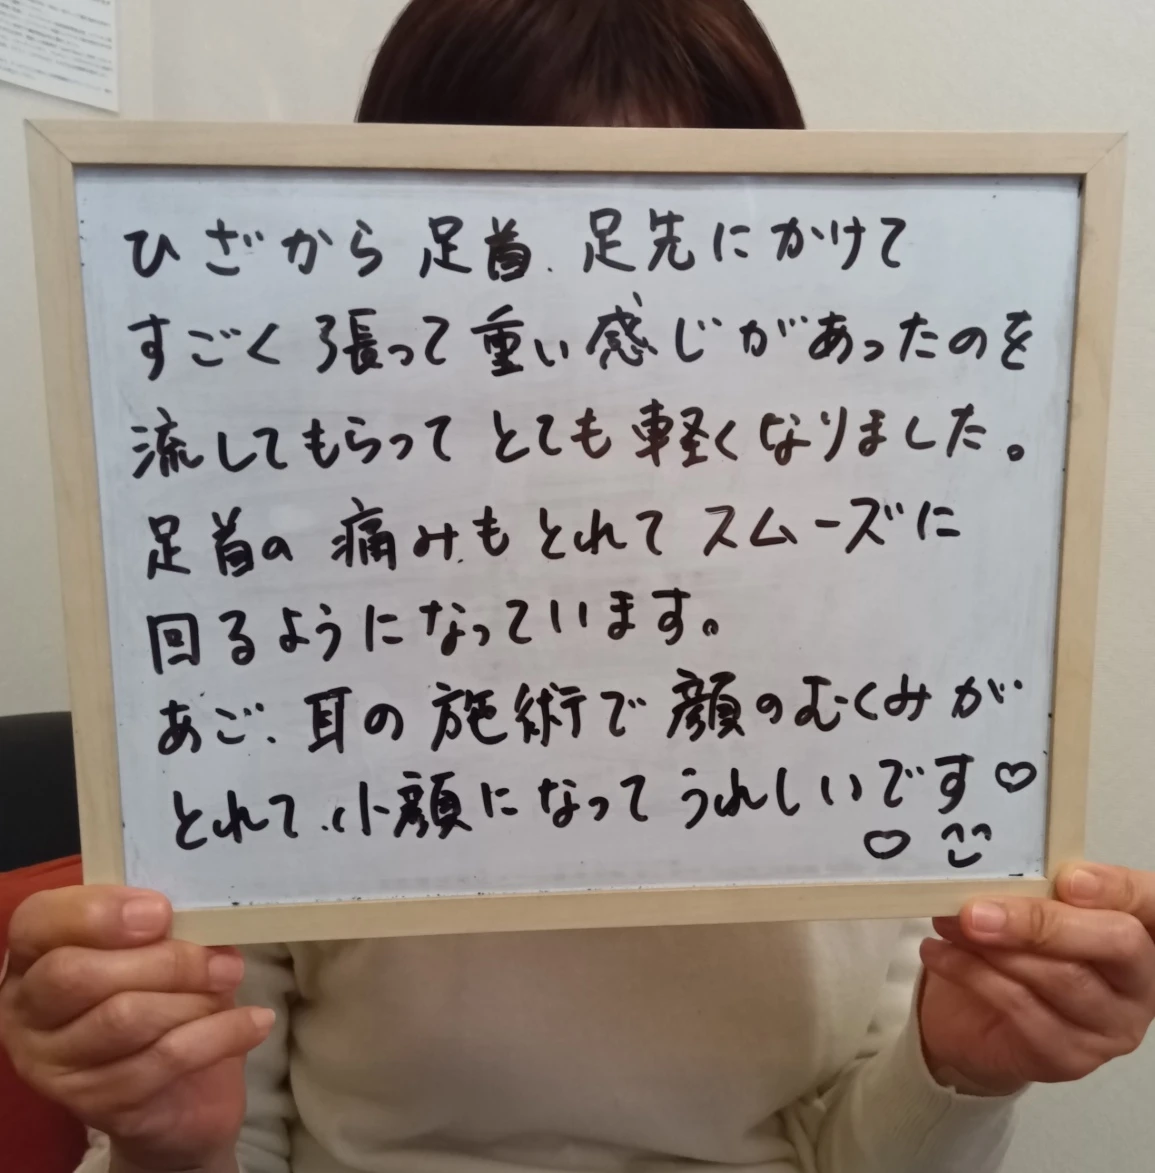 ひざから足首、足先にかけて
すごく張って重い感じがあったのを
流してもらってとても軽くなりました。
足首の痛みもとれてスムーズに
回るようになっています。
あご、耳の施術で顔のむくみが
とれて、小顔になってうれしいです♡
♡